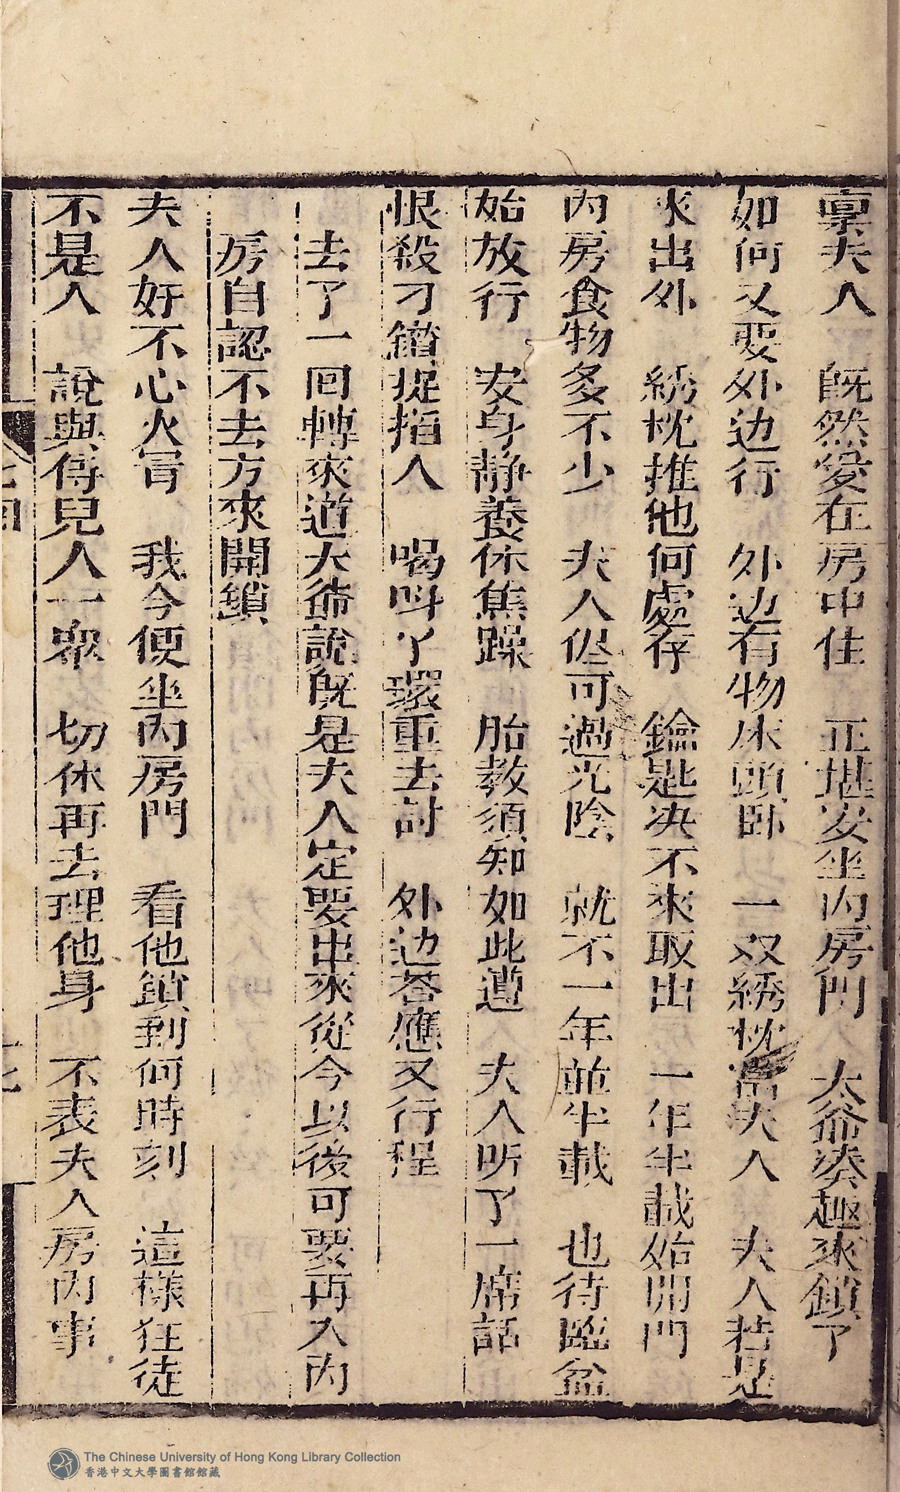 禀夫人　既然爱在房中住　正堪安坐内房門　太爺凑趣來鎖了
如何又要外边行　外边有物床頭卧　一双綉枕當夫人　夫人若是
來出外　綉枕推他何處存　鑰匙决不來取出　一年半載始開門
内房食物多不少　夫人侭可過光陰　就不一年並半載　也待臨盆
始放行　安身静養休焦躁　胎教須知如此遵　夫人听了一席話
恨殺刁鑽捉掐人　喝叫丫環重去討　外边荅應又行程
去了一回轉來道大爺說既是夫人定要出來從今以後可要再入内
房自認不去方來開鎖
夫人好不心火冒　我今便坐内房門　看他鎖到何時刻　這樣狂徒
不是人　說與傅兒人一衆　切休再去理他身　不表夫人房内事
The Chinese University of Hong Kong Library Collection
香港中文大學圖書館館藏